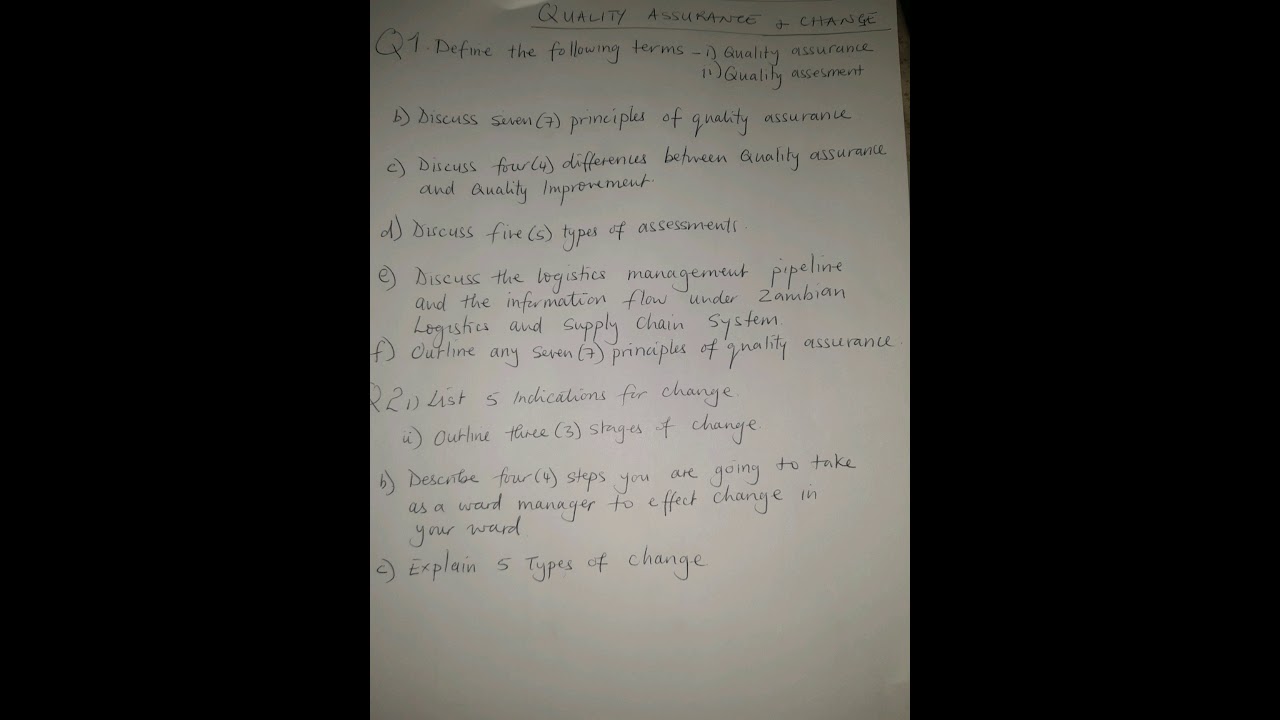 QUALITY ASSURANCE & CHANGE
Q1. Define the following terms - i) Quality assurance
ii) Quality assesment
b) Discuss seven (7) principles of quality assurance
c) Discuss four (4) differences between Quality assurance
and Quality Improvement.
d) Discuss five (5) types of assessments.
e) Discuss the logistics management pipeline
and the information flow under Zambian
Logistics and supply chain system.
f) Outline any seven (7) principles of quality assurance.
Q2 i) List 5 Indications for change.
ii) Outline three (3) stages of change.
b) Describe four (4) steps you are going to take
as a ward manager to effect change in
your ward.
c) Explain 5 Types of change